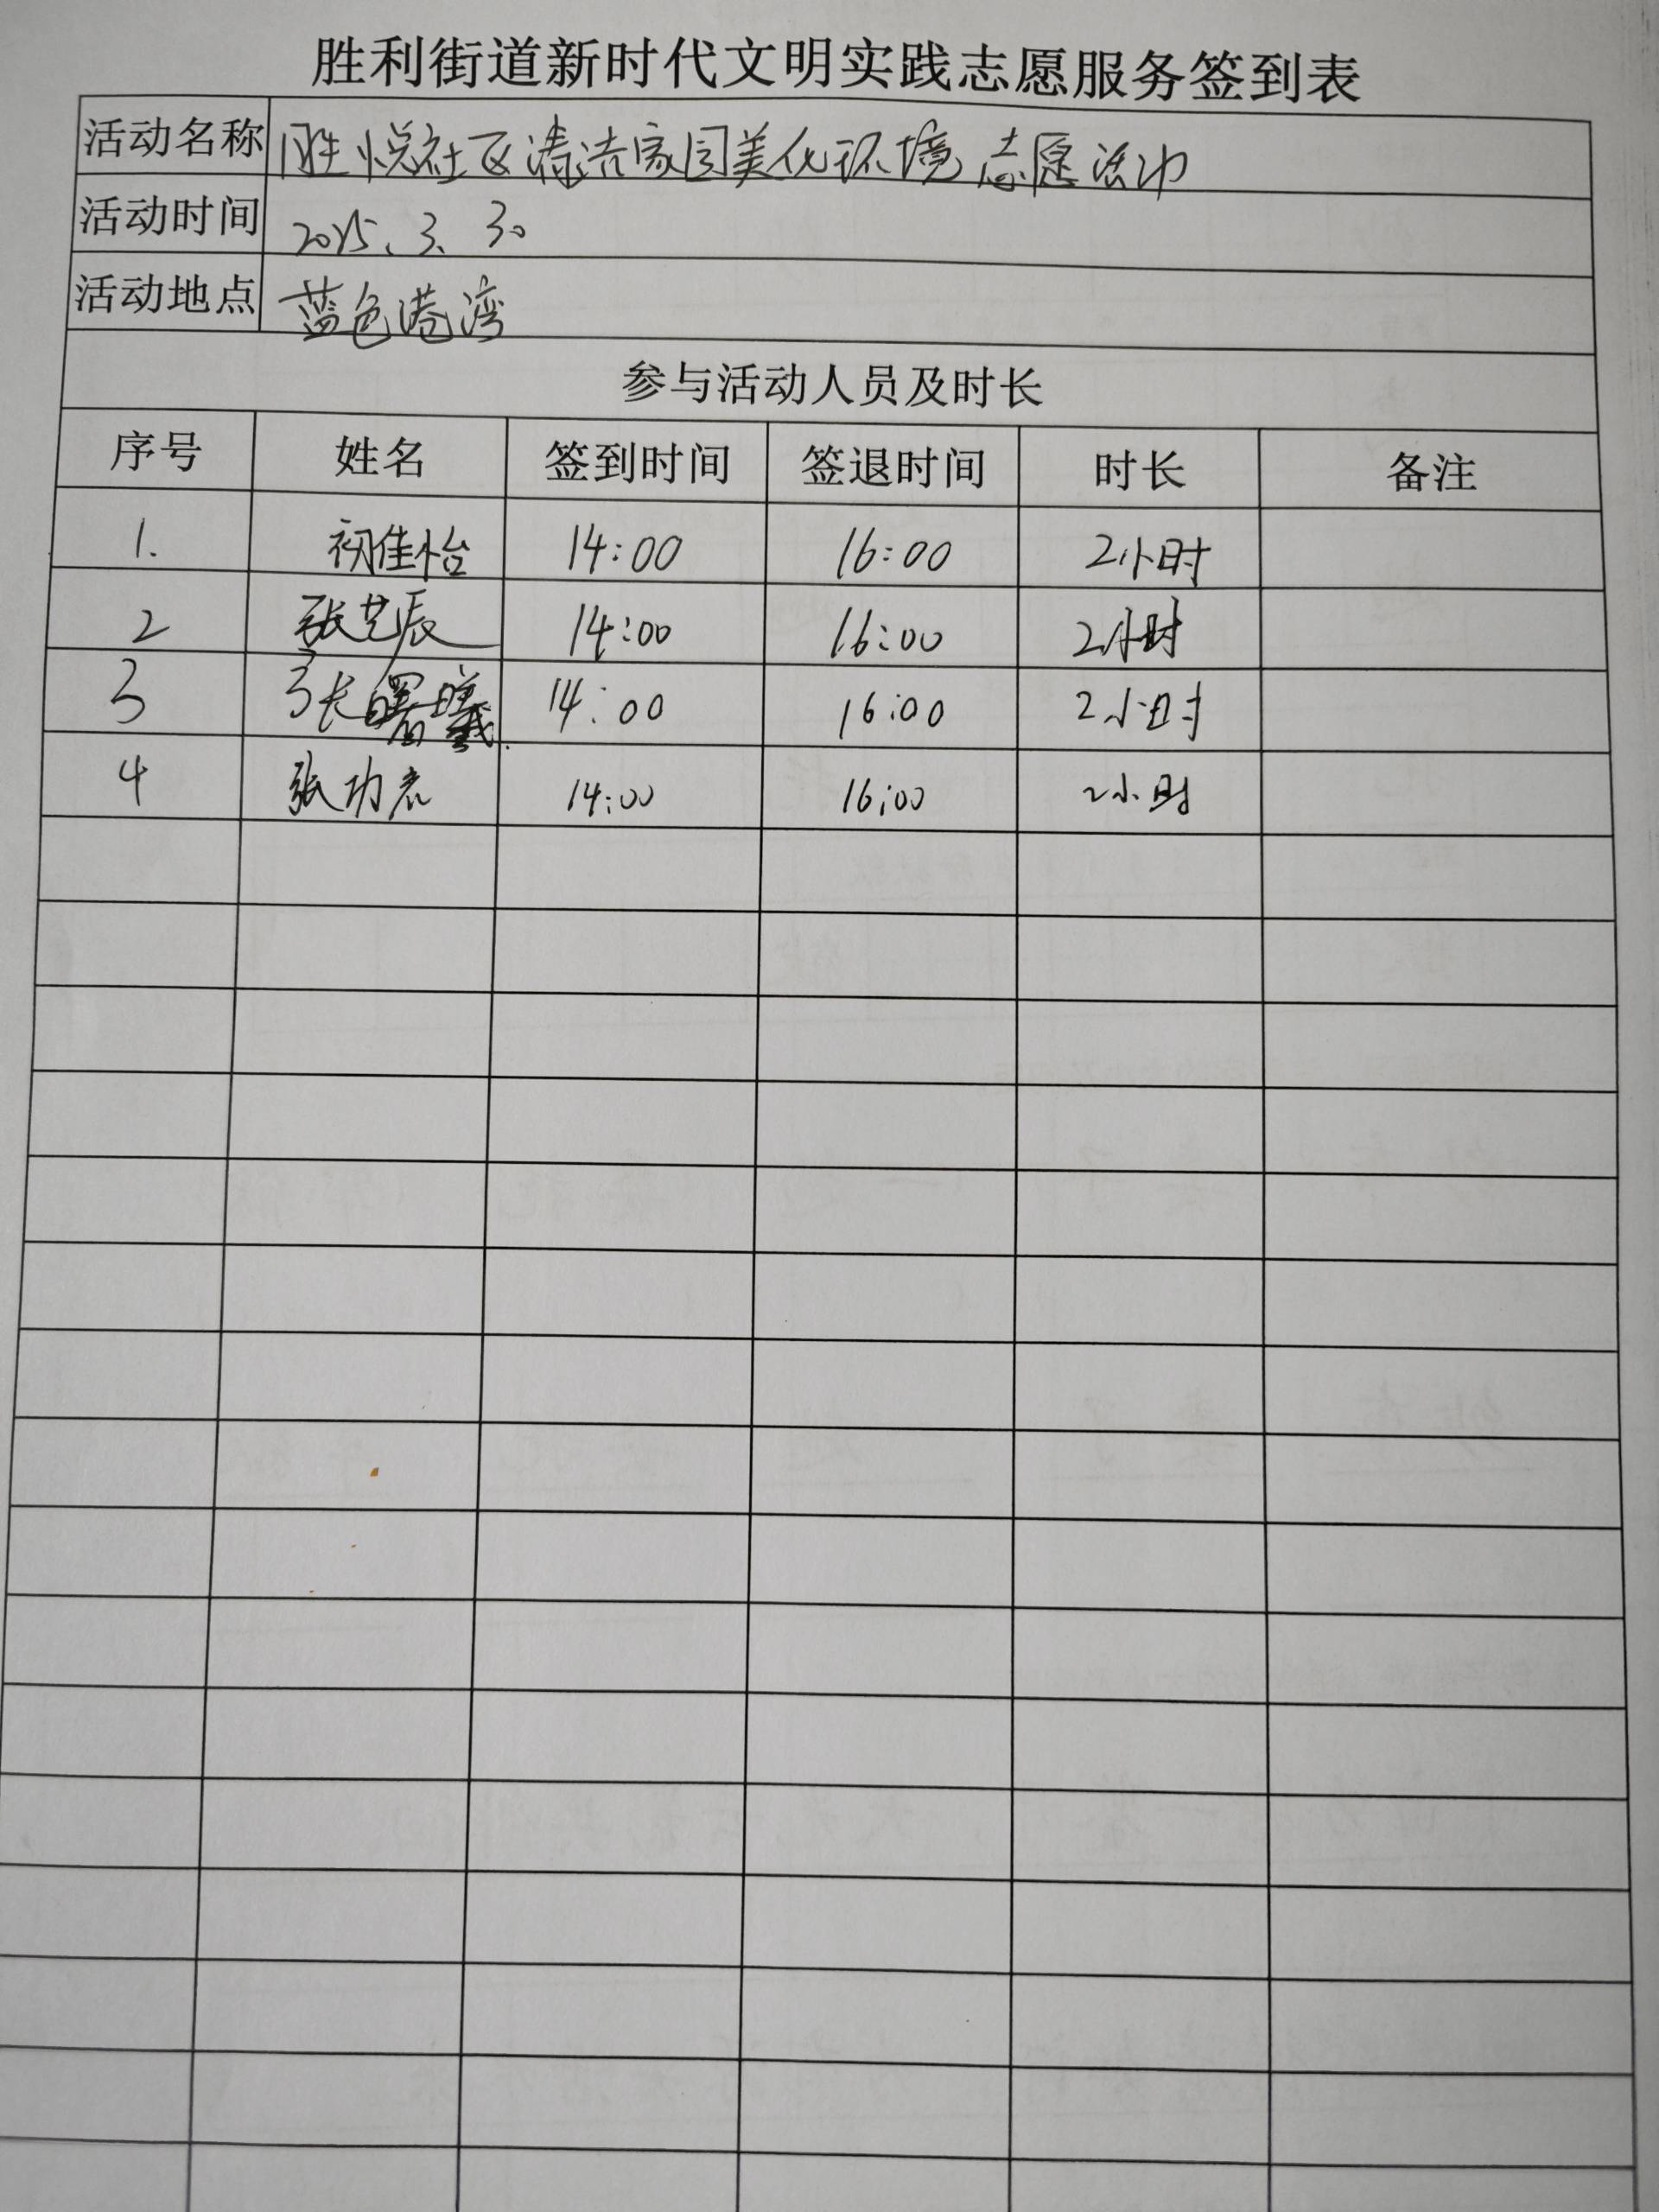 胜利街道新时代文明实践志愿服务签到表
活动名称 胜悦社区清洁家园美化环境志愿活动
活动时间 2025.3.30
活动地点 蓝色港湾
参与活动人员及时长
序号 姓名 签到时间 签退时间 时长 备注
1. 初佳怡 14:00 16:00 2小时
2 张艺辰 14:00 16:00 2小时
3 张曙曦 14:00 16:00 2小时
4 张功 14:00 16:00 2小时